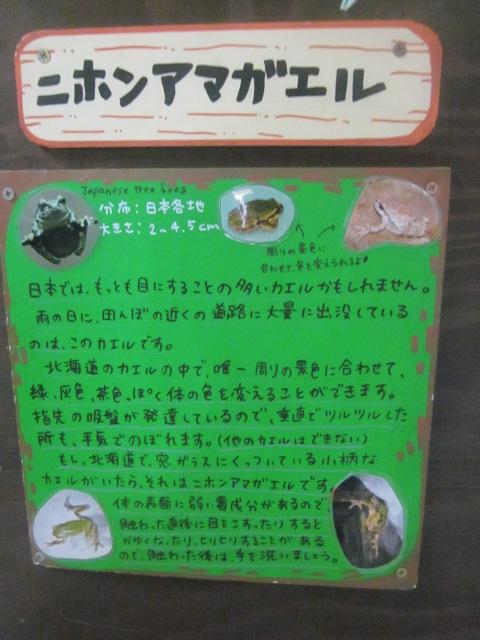 ニホンアマガエル
Japanese tree frog
分布：日本各地
大きさ：2～4.5cm
周りの景色に
合わせて、色を変えられるよ！
日本では、もっとも目にすることの多いカエルかもしれません。
雨の日に、田んぼの近くの道路に大量に出没している
のは、このカエルです。
北海道のカエルの中で、唯一周りの景色に合わせて、
緑、灰色、茶色、ぽく体の色を変えることができます。
指先の吸盤が発達しているので、垂直でツルツルした
所も、平気でのぼれます。（他のカエルはできない）
もし、北海道で、窓ガラスにくっついている小柄な
カエルがいたら、それはニホンアマガエルです。
体の表面に弱い毒成分があるので、
触わった直後に目をこすったりすると
かゆくなったり、ヒリヒリすることがある
ので、触わった後は、手を洗いましょう。